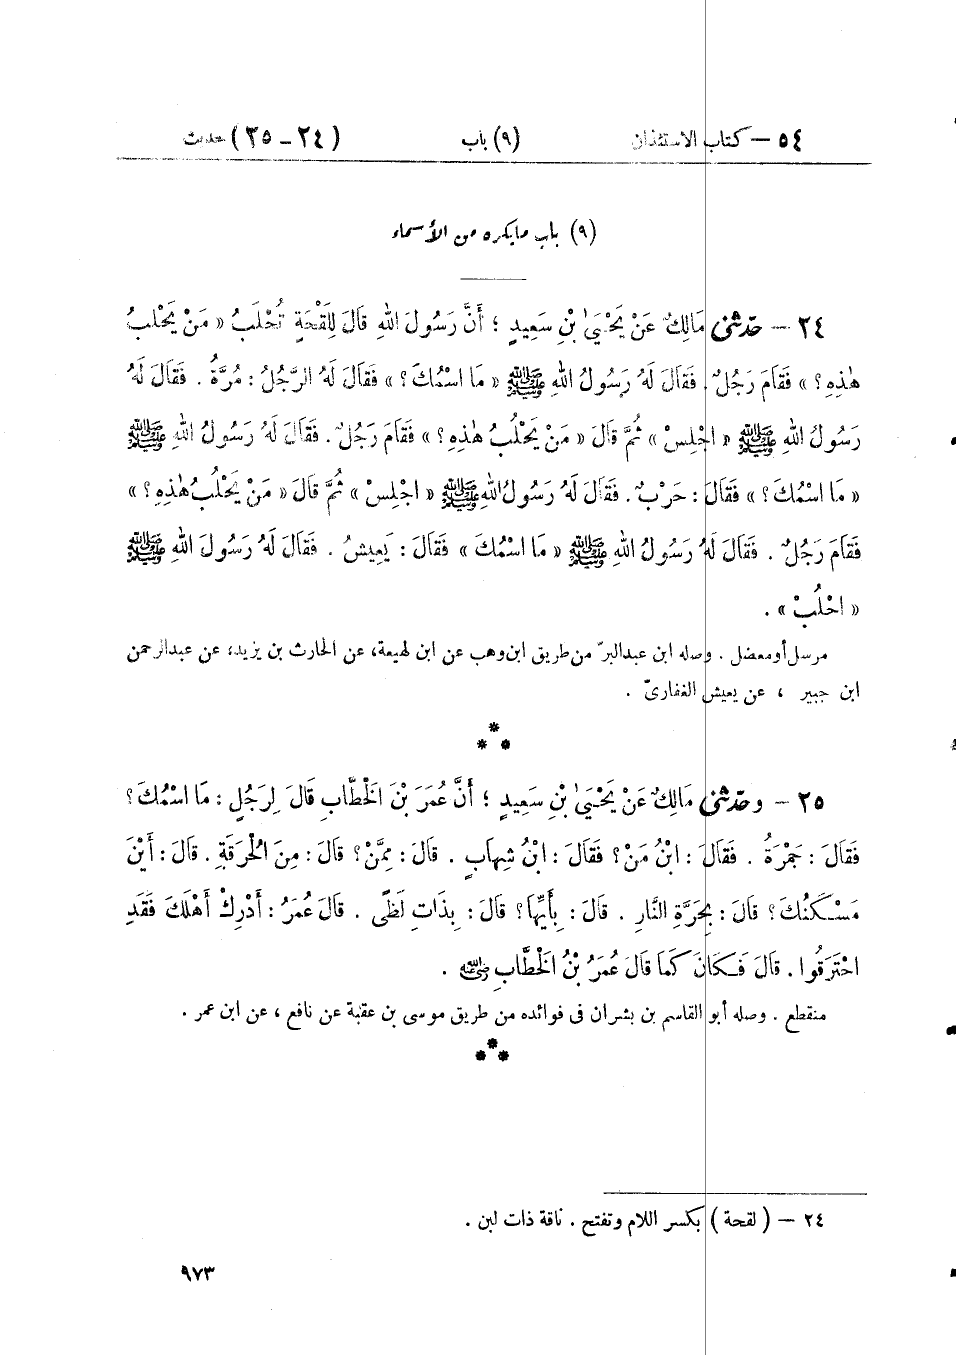 ٥٤ – كتاب الاستئذان (٩) باب (٢٤ – ٢٥) حديث
(٩) باب ما يكره من الأسماء
٢٤ – حَدَّثَنِي مَالِكٌ عَنْ يَحْيَىٰ بْنِ سَعِيدٍ ؛ أَنَّ رَسُولَ اللهِ قَالَ لِلَقْحَةٍ تُحْلَبُ « مَنْ يَحْلُبُ
هٰذِهِ ؟ » فَقَامَ رَجُلٌ . فَقَالَ لَهُ رَسُولُ اللهِ ﷺ « مَا اسْمُكَ ؟ » فَقَالَ لَهُ الرَّجُلُ : مُرَّةُ . فَقَالَ لَهُ
رَسُولُ اللهِ ﷺ « اجْلِسْ » ثُمَّ قَالَ « مَنْ يَحْلُبُ هٰذِهِ ؟ » فَقَامَ رَجُلٌ . فَقَالَ لَهُ رَسُولُ اللهِ ﷺ
« مَا اسْمُكَ ؟ » فَقَالَ : حَرْبٌ . فَقَالَ لَهُ رَسُولُ اللهِ ﷺ « اجْلِسْ » ثُمَّ قَالَ « مَنْ يَحْلُبُ هٰذِهِ ؟ »
فَقَامَ رَجُلٌ . فَقَالَ لَهُ رَسُولُ اللهِ ﷺ « مَا اسْمُكَ » فَقَالَ : يَعِيشُ . فَقَالَ لَهُ رَسُولَ اللهِ ﷺ
« احْلُبْ » .
مرسل أو معضل . وصله ابن عبدالبرّ من طريق ابن وهب عن ابن لهيعة، عن الحارث بن يزيد، عن عبدالرحمن
ابن جبير ، عن يعيش الغفارىّ .
٢٥ – وحَدَّثَنِي مَالِكٌ عَنْ يَحْيَىٰ بْنِ سَعِيدٍ ؛ أَنَّ عُمَرَ بْنَ الْخَطَّابِ قَالَ لِرَجُلٍ : مَا اسْمُكَ ؟
فَقَالَ : جَمْرَةُ . فَقَالَ : ابْنُ مَنْ ؟ فَقَالَ : ابْنُ شِهَابٍ . قَالَ : مِمَّنْ ؟ قَالَ : مِنَ الْحُرَقَةِ . قَالَ : أَيْنَ
مَسْكَنُكَ ؟ قَالَ : بِحَرَّةِ النَّارِ . قَالَ : بِأَيِّهَا ؟ قَالَ : بِذَاتِ لَظًى . قَالَ عُمَرُ : أَدْرِكْ أَهْلَكَ فَقَدِ
احْتَرَقُوا . قَالَ فَكَانَ كَمَا قَالَ عُمَرُ بْنُ الْخَطَّابِ رضي الله عنه .
منقطع . وصله أبو القاسم بن بشران فى فوائده من طريق موسى بن عقبة عن نافع ، عن ابن عمر .
٢٤ – ( لقحة ) بكسر اللام وتفتح . ناقة ذات لبن .
٩٧٣